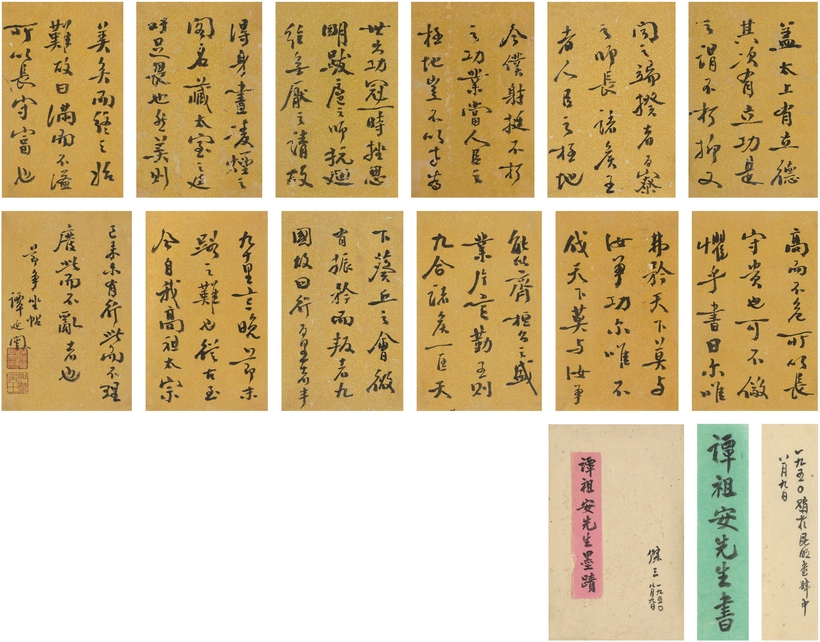 蓋太上有立德
其次有立功是
之謂不朽抑又
聞之端揆者百寮
之師長諸侯王
者人臣之極地
今僕射挺不朽
之功業當人臣之
極地豈不以才為
世出功冠一時挫思
明跋扈之師抗迴
紇無厭之請故
得身畫凌煙之
閣名藏太室之廷
吁足畏也然美則
美矣而終之始
難故曰滿而不溢
所以長守富也
高而不危所以長
守貴也可不儆
懼乎書曰爾唯
弗矜天下莫與
汝爭功爾唯不
伐天下莫與汝爭
能以齊桓公之盛
業片言勤王則
九合諸侯一匡天
下葵丘之會微
有振矜而叛者九
國故曰行百里者半
九十里言晚節末
路之難也從古至
今自我高祖太宗
已來未有行此而不理
廢此而不亂者也
節爭坐帖
譚延闓
一九五〇購於昆明書肆中
八月九日
譚祖安先生書
傑三
一九五〇
八月九日
譚祖安先生墨蹟